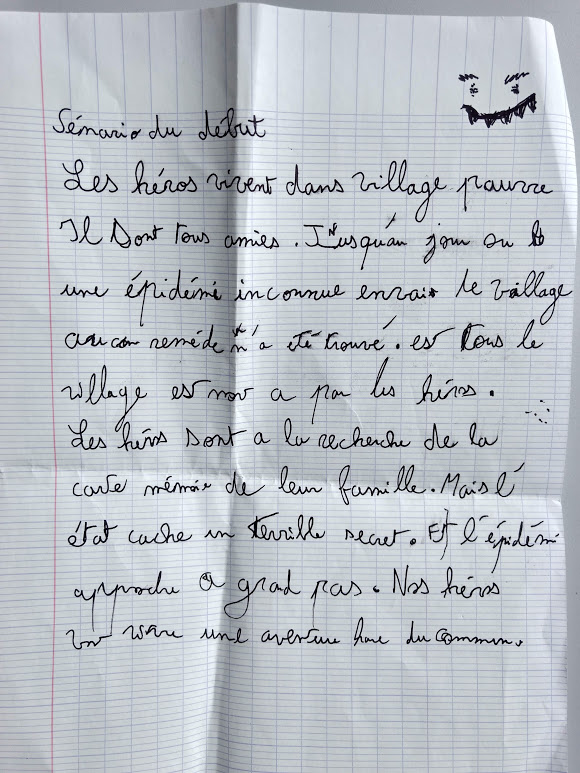 Sénario du début
Les héros vivent dans village pauvre
Il Sont tous amies. Jusqu'an jour ou
une épidémi inconnue envai le village
aucun reméde n'a eté trouvé. est tous le
village est mor a par les héros.
Les héros Sont a la recherche de la
carte mémoire de leur famille. Mais l'
état cache un terrible secret. Et l'épidémi
approche a grad pas. Nos héros
von vivre une aventure hore du commun.